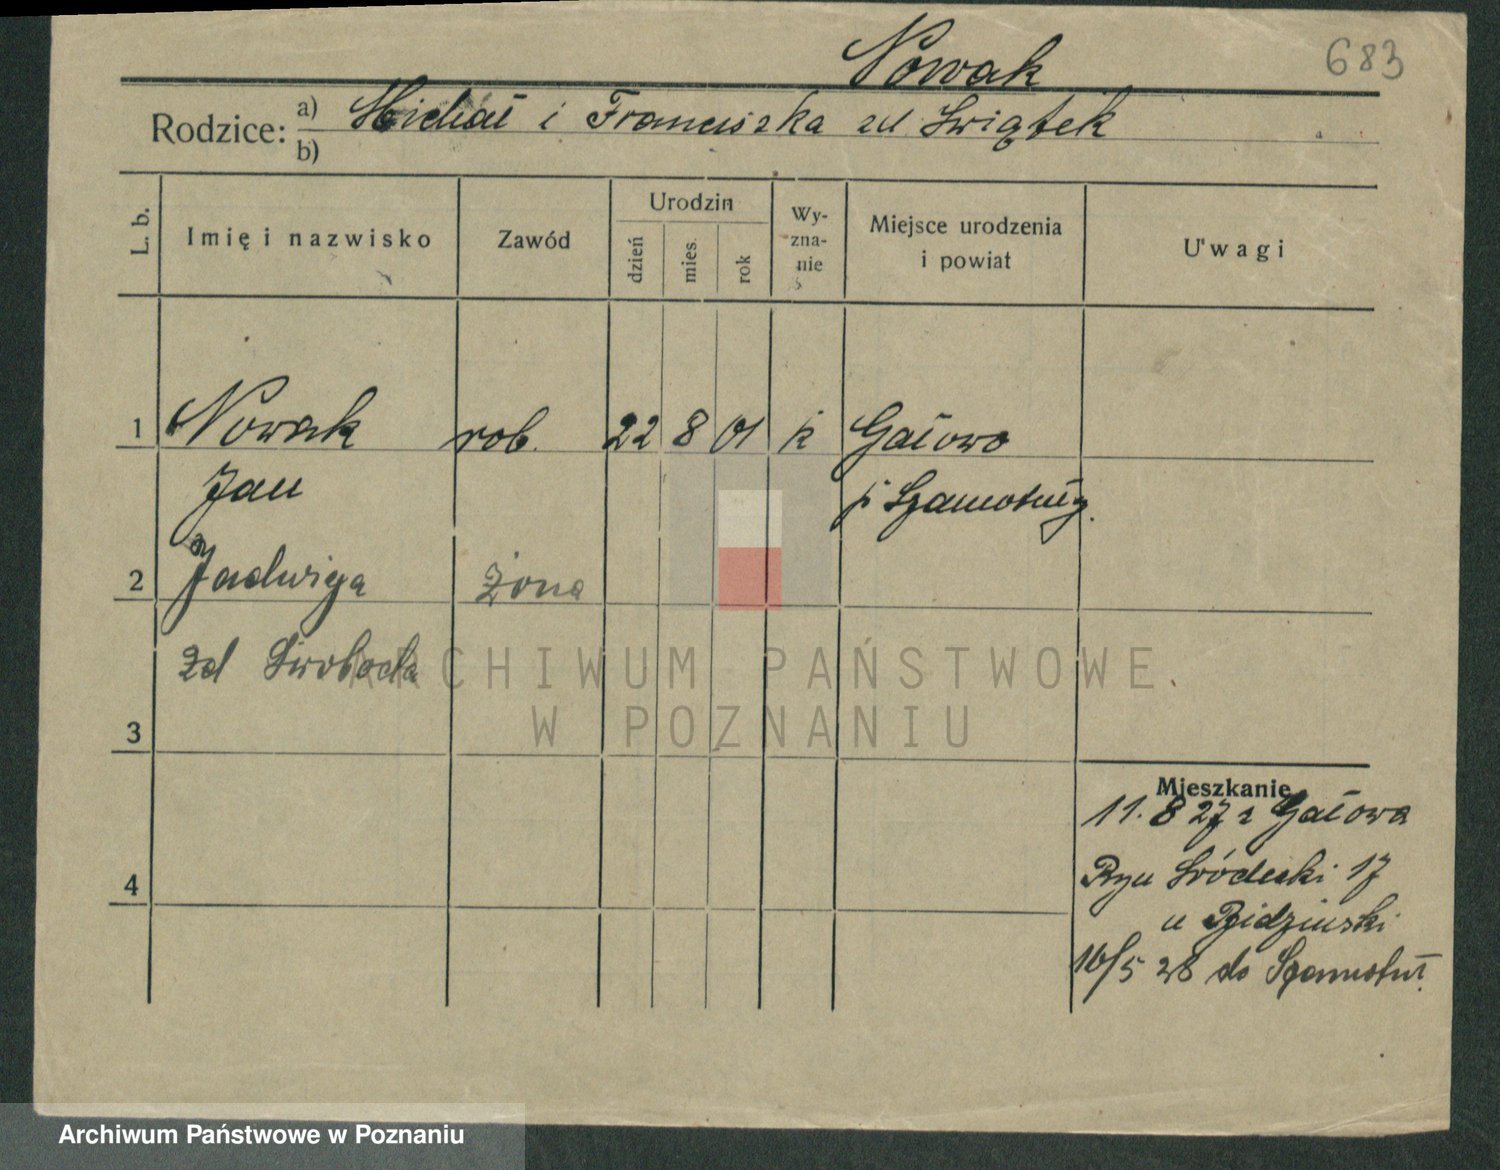 Nowak
683
Rodzice: a) Michał i Franciszka zd Świątek
b)
L. b. Imię i nazwisko Zawód Urodzin dzień mies. rok Wyzna-nie Miejsce urodzenia i powiat Uwagi
1 Nowak rob. 22 8 01 k Gałowo
Jan p. Szamotuły.
2 Jadwiga żona
zd Swoboda
3
Mieszkanie
11. 8 27 z Gałowa
4 Ryn Śródecki 17
u
16/5 28 do Szamotuł.
ARCHIWUM PAŃSTWOWE
W POZNANIU
Archiwum Państwowe w Poznaniu